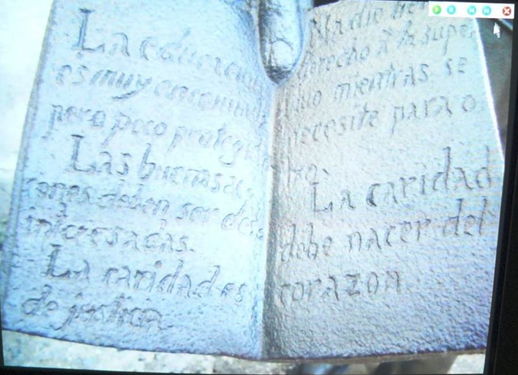 La educación
es muy encomiada
pero poco protegida
Las buenas ac
ciones deben ser des
interesadas.
La caridad es
de justicia
Nadie tiene
derecho a lo super
fluo mientras se
necesite para o
tro.
La caridad
debe nacer del
corazon